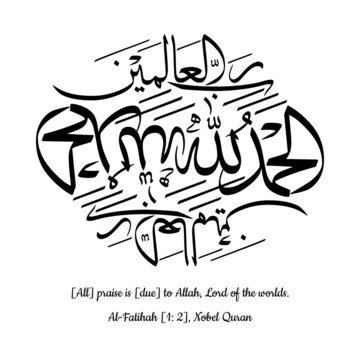 رب العالمين
الحمد لله
[All] praise is [due] to Allah, Lord of the worlds.
Al-Fatihah [1: 2], Nobel Quran